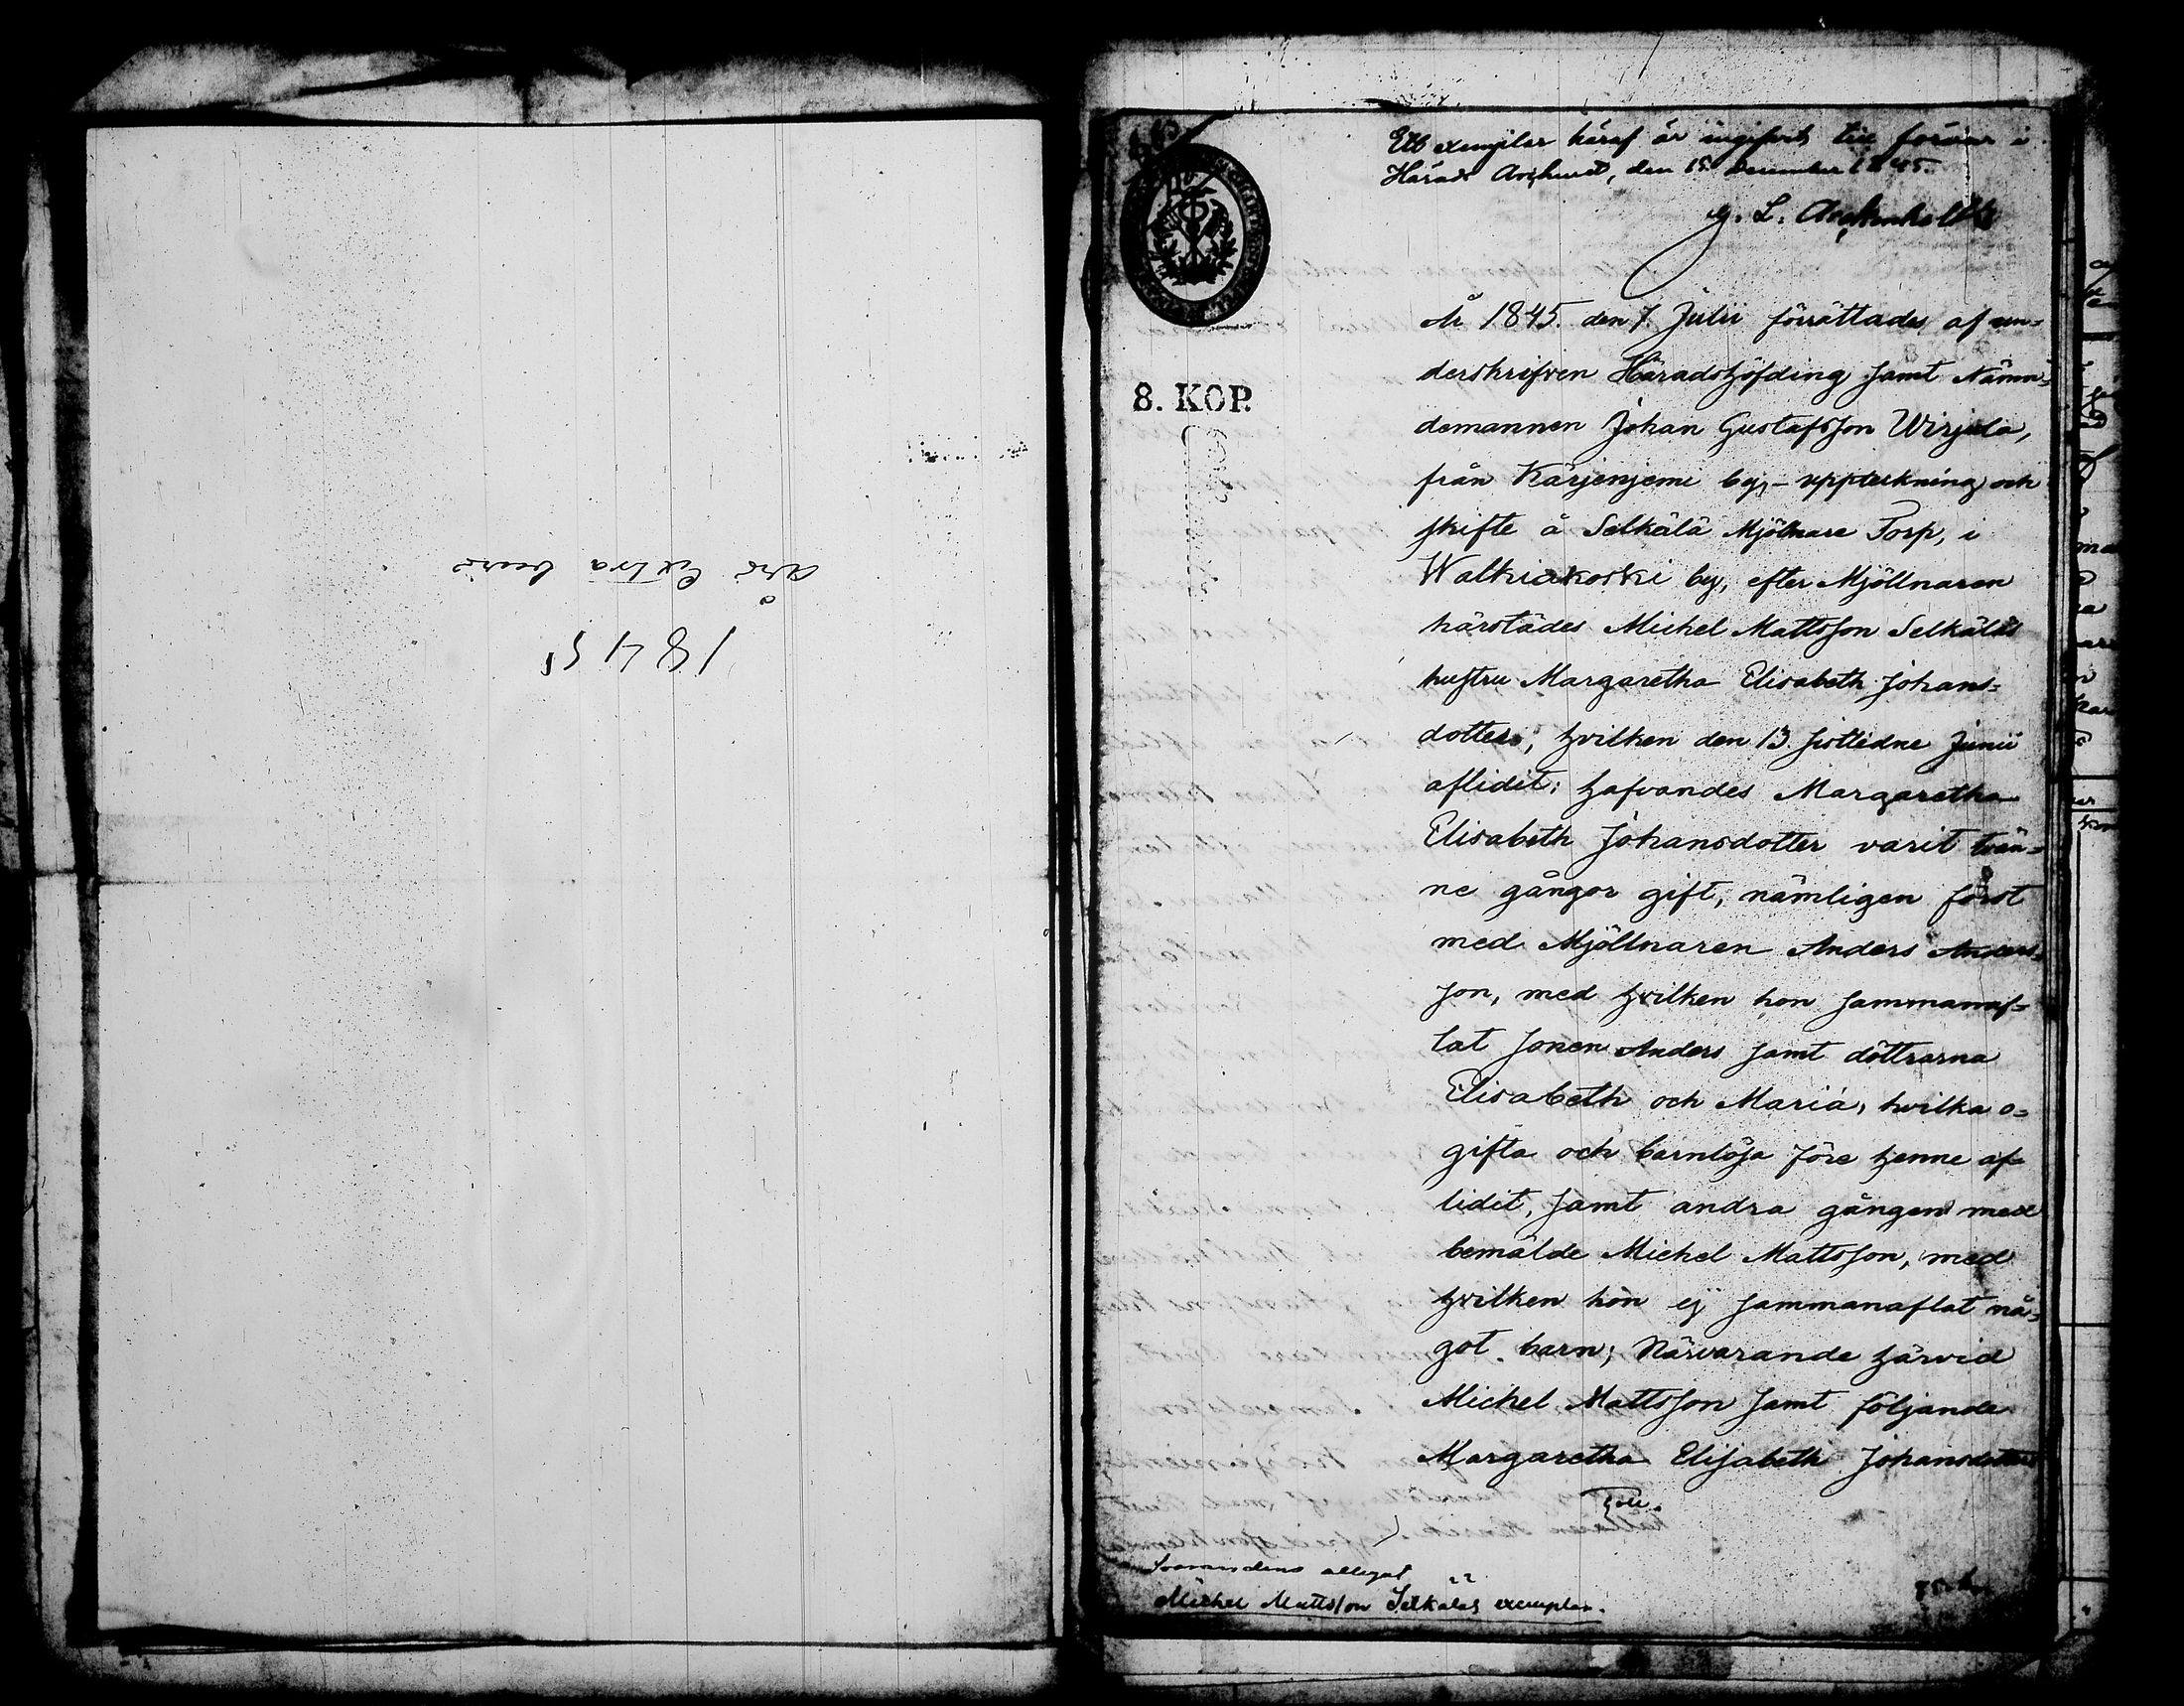 1845
Ett exemplar häraf är ingifvit till förvar i
Härads Archivet, den 15 December 1845.
L. Archenholtz
8. KOP.
År 1845. den 7. Julii förrättades af un-
derskrifven Häradshöfding samt Nämn-
demannen Johan Gustafsson Wirjala,
från Kärjenjemi by, - uppteckning och
skifte å Selkälä Mjölnare Torp, i
Walkiakoski by, efter Mjöllnaren
härstädes Michel Mattsson Selkäläs
hustru Margaretha Elisabeth Johans-
dotter, hvilken den 13. sistledne Junii
aflidit; hafvandes Margaretha
Elisabeth Johansdotter varit tvän-
ne gångor gift, nämligen först
med Mjöllnaren Anders Anders-
son, med hvilken hon sammanaf-
lat sonen Anders samt döttrarna
Elisabeth och Maria, hvilka o-
gifta och barnlösa före henne af-
lidit, samt andra gången med
bemälde Michel Mattsson, med
hvilken hon ej sammanaflat nå-
got barn; Närvarande härvid
Michel Mattsson samt följande
Margaretha Elisabeth Johansdotters
Michel Mattsson Selkäläs exemplar.